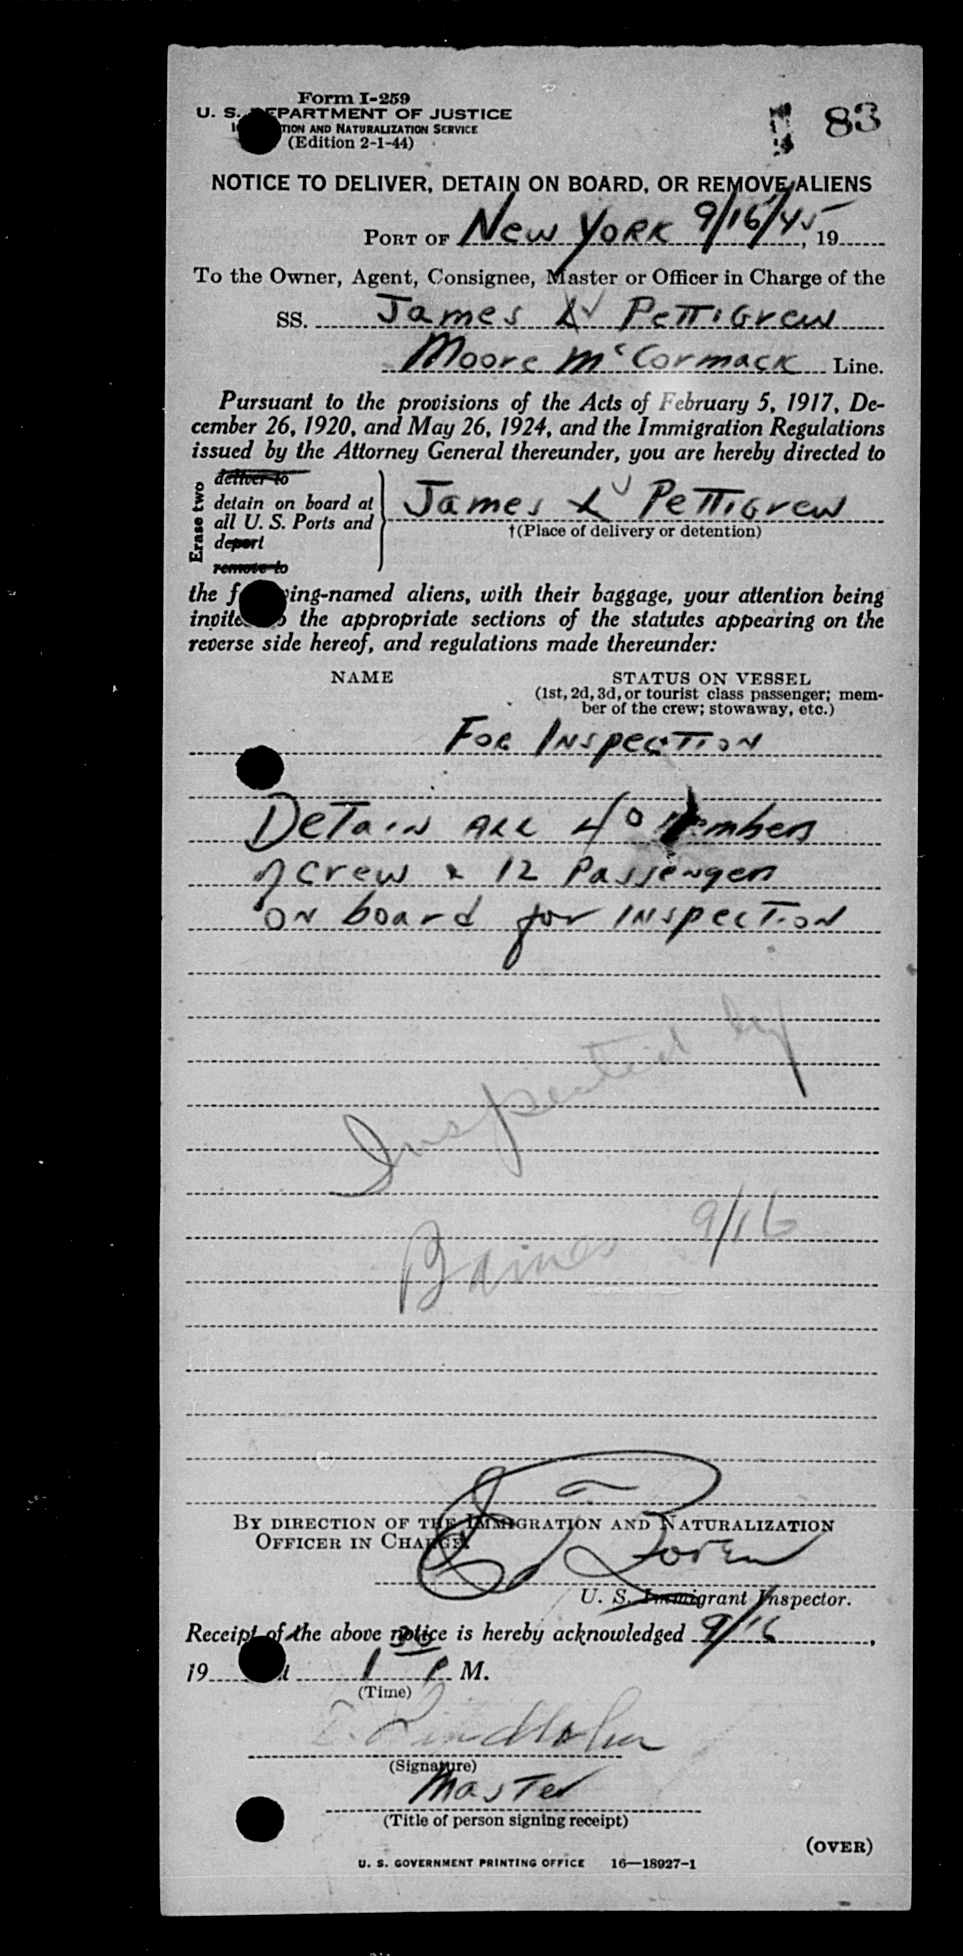 Form I-259
U. S. DEPARTMENT OF JUSTICE
TION AND NATURALIZATION SERVICE
(Edition 2-1-44)
83
NOTICE TO DELIVER, DETAIN ON BOARD, OR REMOVE ALIENS
PORT OF New York 9/16/45, 19
To the Owner, Agent, Consignee, Master or Officer in Charge of the
SS. James J Pettigrew
Moore McCormack Line.
Pursuant to the provisions of the Acts of February 5, 1917, De-
cember 26, 1920, and May 26, 1924, and the Immigration Regulations
issued by the Attorney General thereunder, you are hereby directed to
Erase two
deliver to
detain on board at
all U. S. Ports and
deport
remove to
James J Pettigrew
†(Place of delivery or detention)
the f ing-named aliens, with their baggage, your attention being
invite the appropriate sections of the statutes appearing on the
reverse side hereof, and regulations made thereunder:
NAME STATUS ON VESSEL
(1st, 2d, 3d, or tourist class passenger; mem-
ber of the crew; stowaway, etc.)
For Inspection
Detain all 40 Members
of Crew & 12 Passengers
on board for Inspection
Inspected by
Baines 9/16
BY DIRECTION OF THE IMMIGRATION AND NATURALIZATION
OFFICER IN CHARGE.
U. S. Immigrant Inspector.
Receipt of the above notice is hereby acknowledged 9/16,
19 1 30 P. M.
(Time)
(Signature)
Master
(Title of person signing receipt)
(OVER)
U. S. GOVERNMENT PRINTING OFFICE 16—18927-1